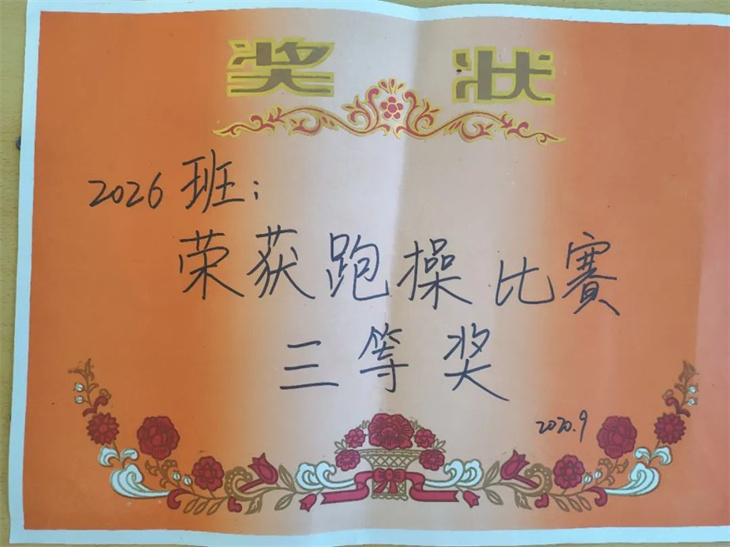 奖状
2026班:
荣获跑操比赛
三等奖
2020.9